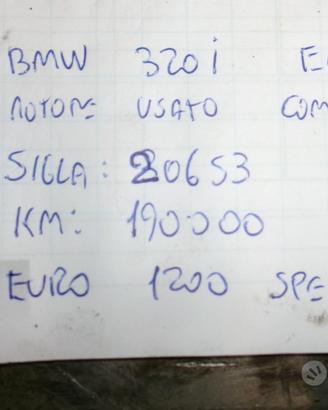 BMW 320i E
MOTORE USATO COM
SIGLA: 206S3
KM: 190000
EURO 1200 SPE